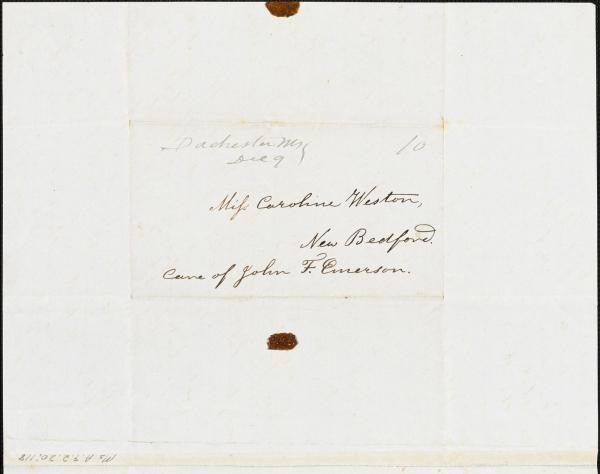 Dorchester Ms
Dec 9
10
Miss Caroline Weston,
New Bedford.
Care of John F. Emerson.
Ms. A.9.2.20.118